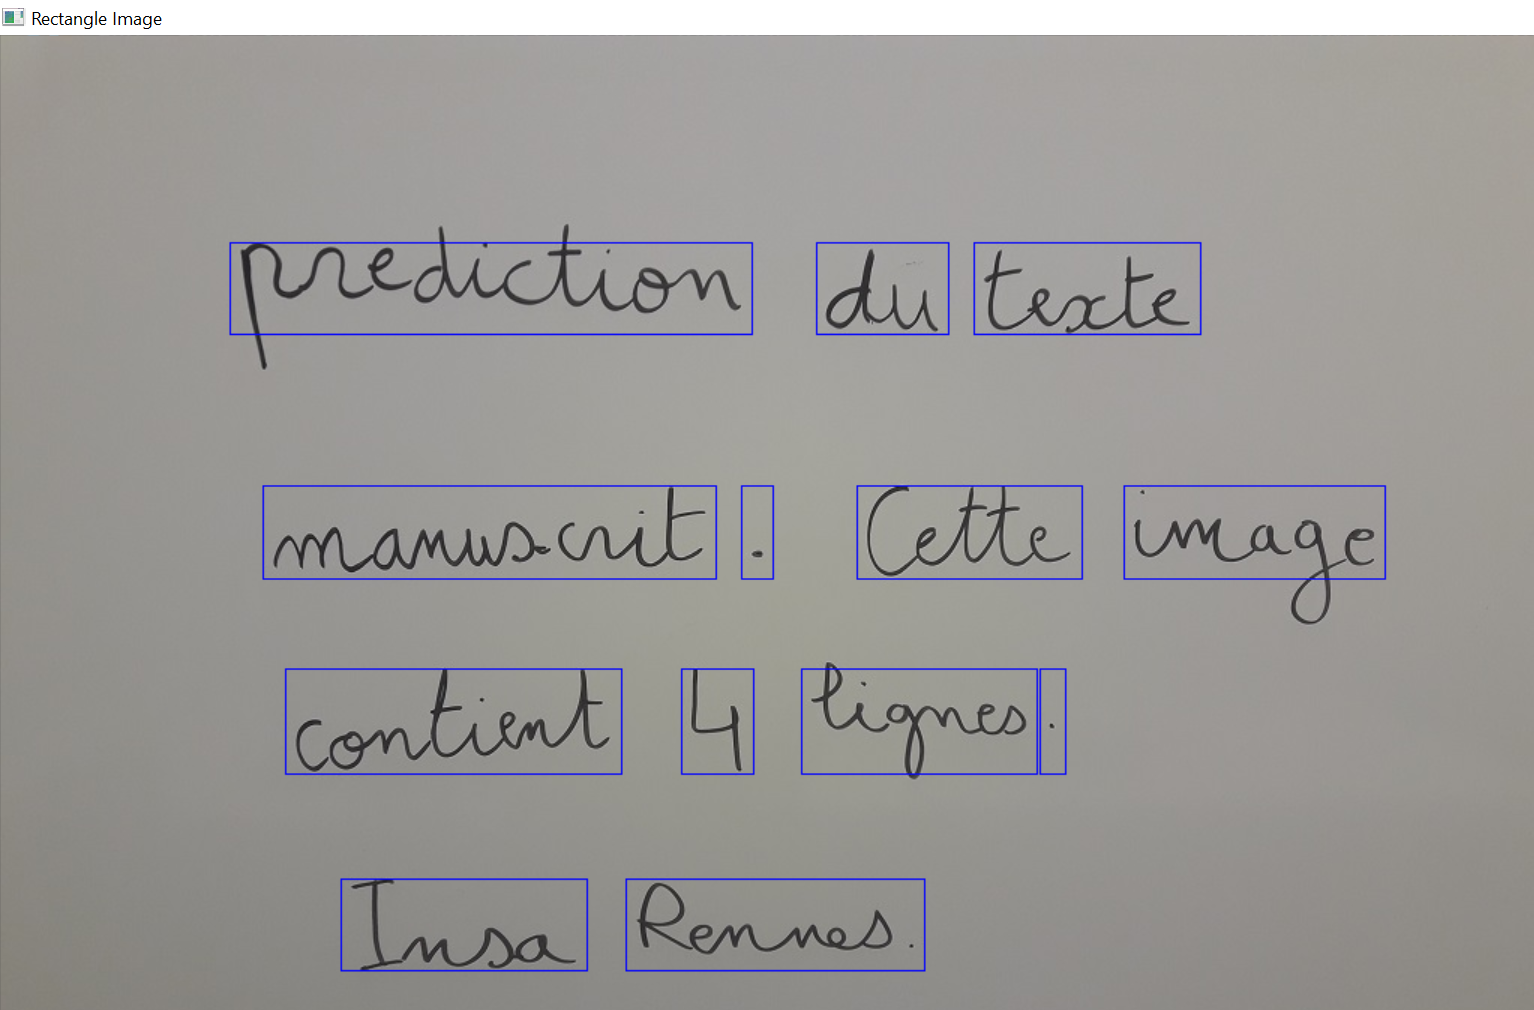 Rectangle Image
prediction du texte
manuscrit . Cette image
contient 4 lignes .
Insa Rennes.